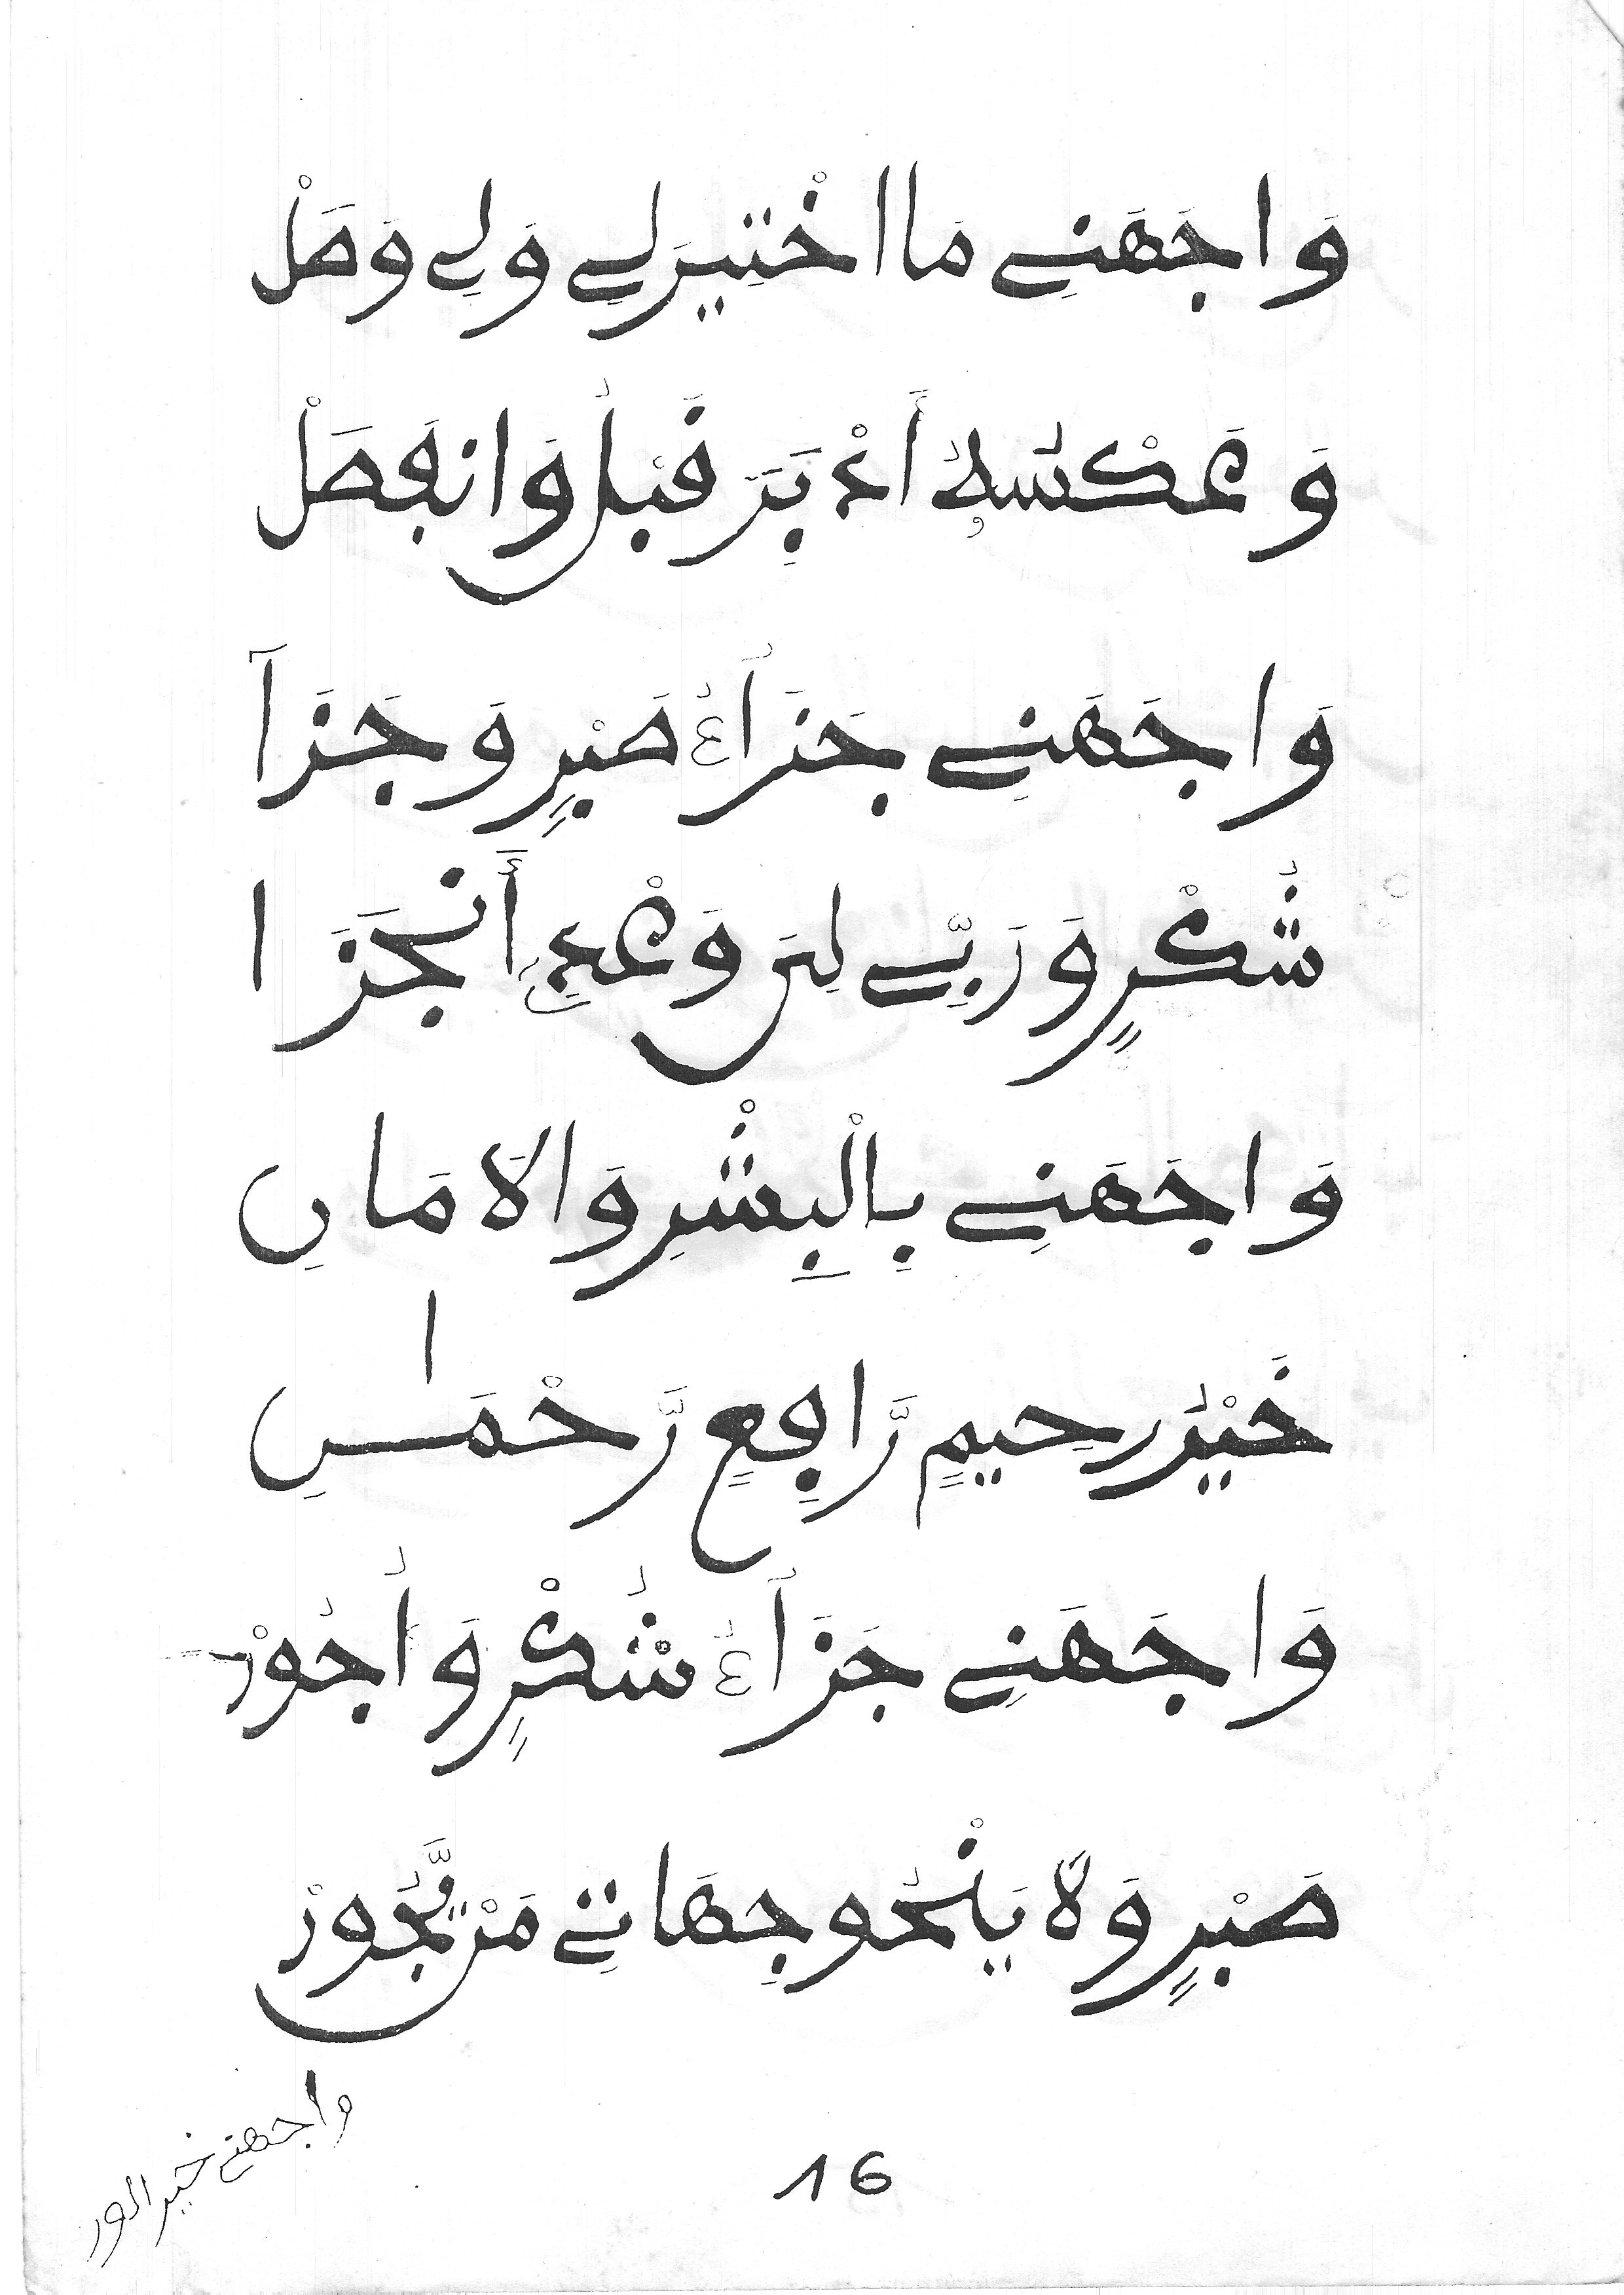 وَاجَهَنِي مَا اخْتِيرَ لِي وَلِي وَصَلْ
وَعَكْسُهُ أَدْبَرَ قَبْلُ وَانفَصَلْ
وَاجَهَنِي جَزَآءُ صَبْرٍ وَجَزَآ
شُكْرٍ وَرَبِّي لِيَ وَعْدِهِ أَنجَزَا
وَاجَهَنِي بِالْبِشْرِ وَالَامَانِ
خَيْرُ رَحِيمٍ رَّافِعٍ رَّحْمَانِ
وَاجَهَنِي جَزَآءُ شُكْرٍ وَأُجُورْ
صَبْرٍ وَلَا يَنْحُو جِهَاتِي مَنْ يَّجُورْ
واجهني خير الور
16